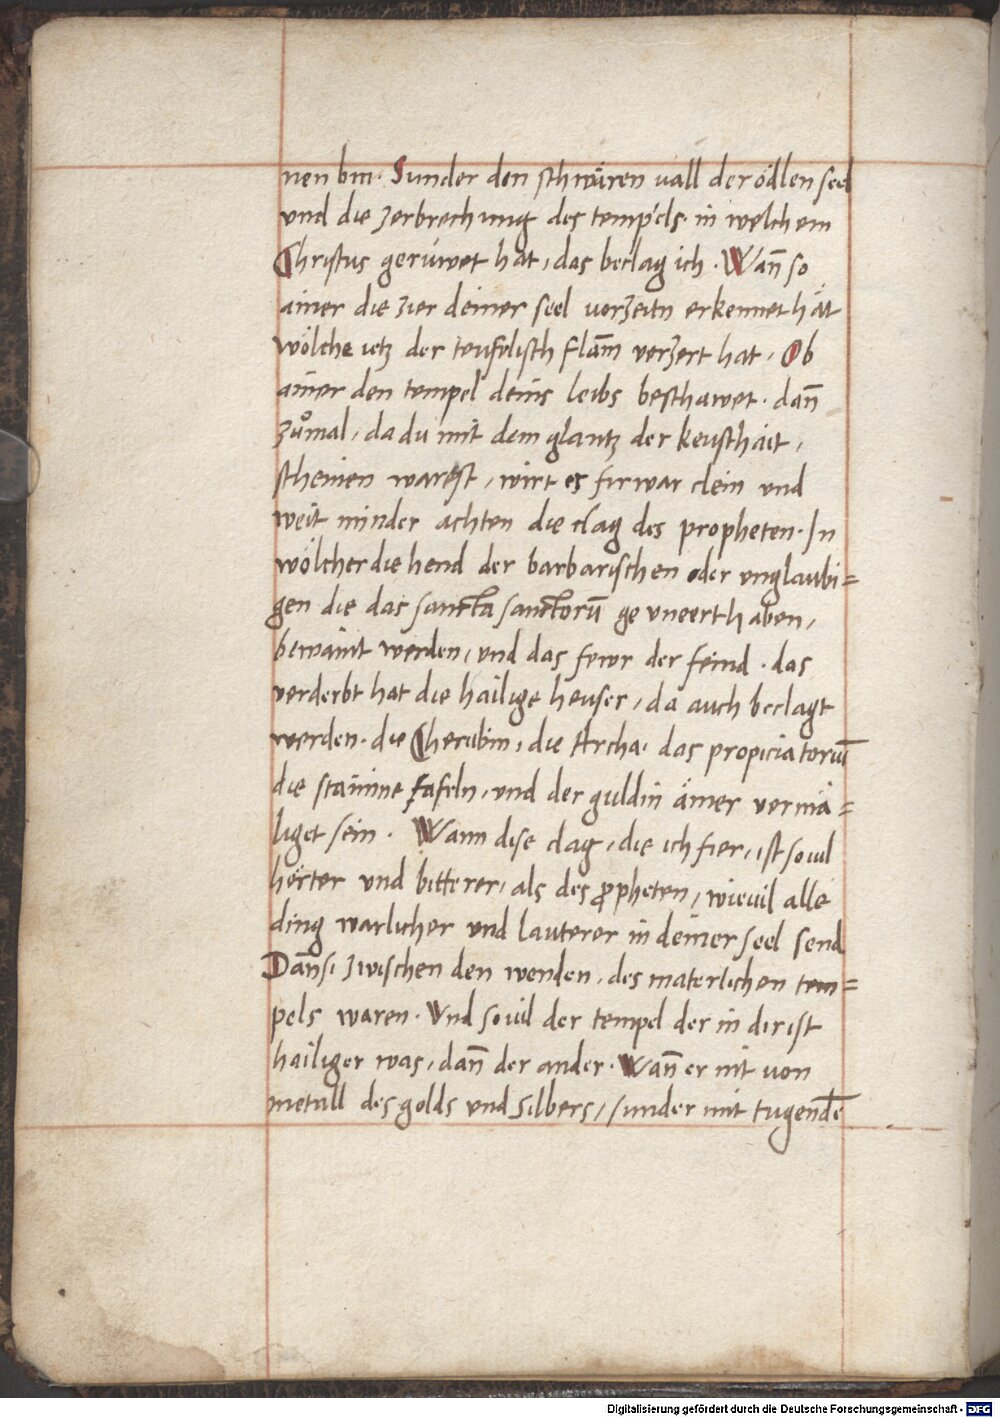 nen bin. Sunder den schwären vall der ödlen seel
und die zerbrechung des tempels in welchem
Christus gerüwet hat, das beclag ich. Wan̄ so
ainer die zier deiner seel vorzeitn erkennet hät
wölche ietz der teufelisch flam̄ verzert hat, Ob
ainer den tempel deins leibs beschawet. dan̄
zůmal, da du mit dem glantz der keuschait,
scheinen warest, wirt es firwar clein und
weit minder achten die clag des propheten. In
wölcher die hend der barbarischen oder unglaubi=
gen die das sancta sanctorū ge uneert haben,
bewaint werden, und das fewr der feind. das
verderbt hat die hailige heuser, da auch beclagt
werden. die Cherubin, die Archa. das propiciatoriū
die stainine tafeln, und der guldin ämer vermä=
liget sein. Wann dise clag, die ich fier, ist so uil
herter und bitterer, als des propheten, wieuil alle
ding warlicher und lauterer in deiner seel send
Dan̄ si zwischen den wenden, des materlichen tem=
pels waren. Und so uil der tempel der in dir ist
hailiger was, dan̄ der ander. Wan̄ er nit von
metall des golds und silbers, sunder mit tugendē
Digitalisierung gefördert durch die Deutsche Forschungsgemeinschaft - DFG